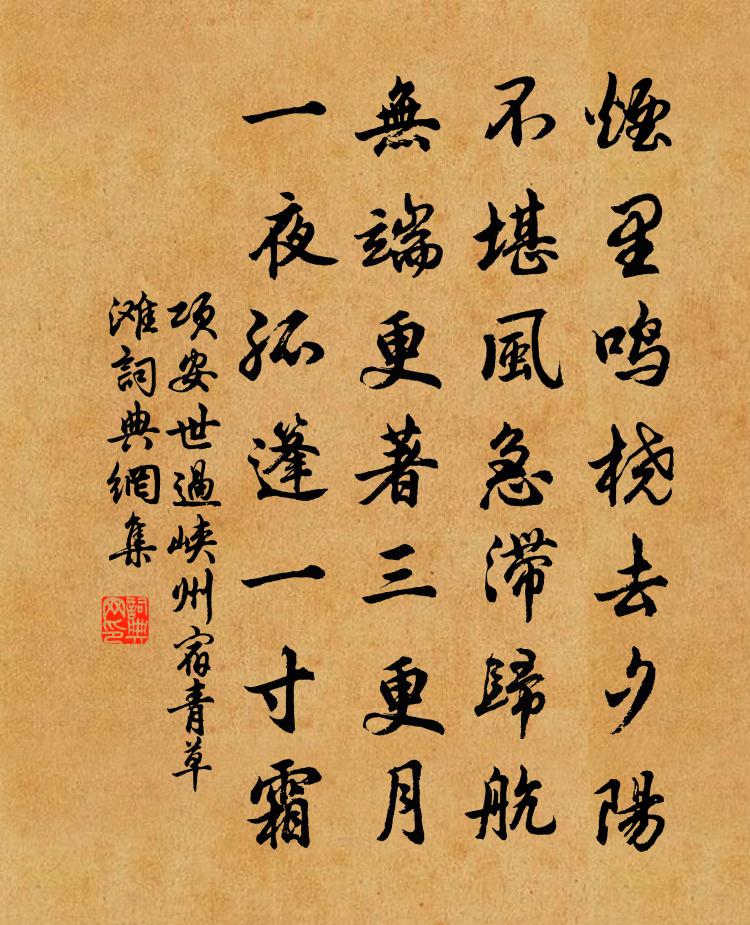 煙里鸣桡去夕陽
不堪風急滞歸航
無端更著三更月
一夜孤篷一寸霜
项安世過峡州宿青草
滩詞典網集
詞典网印